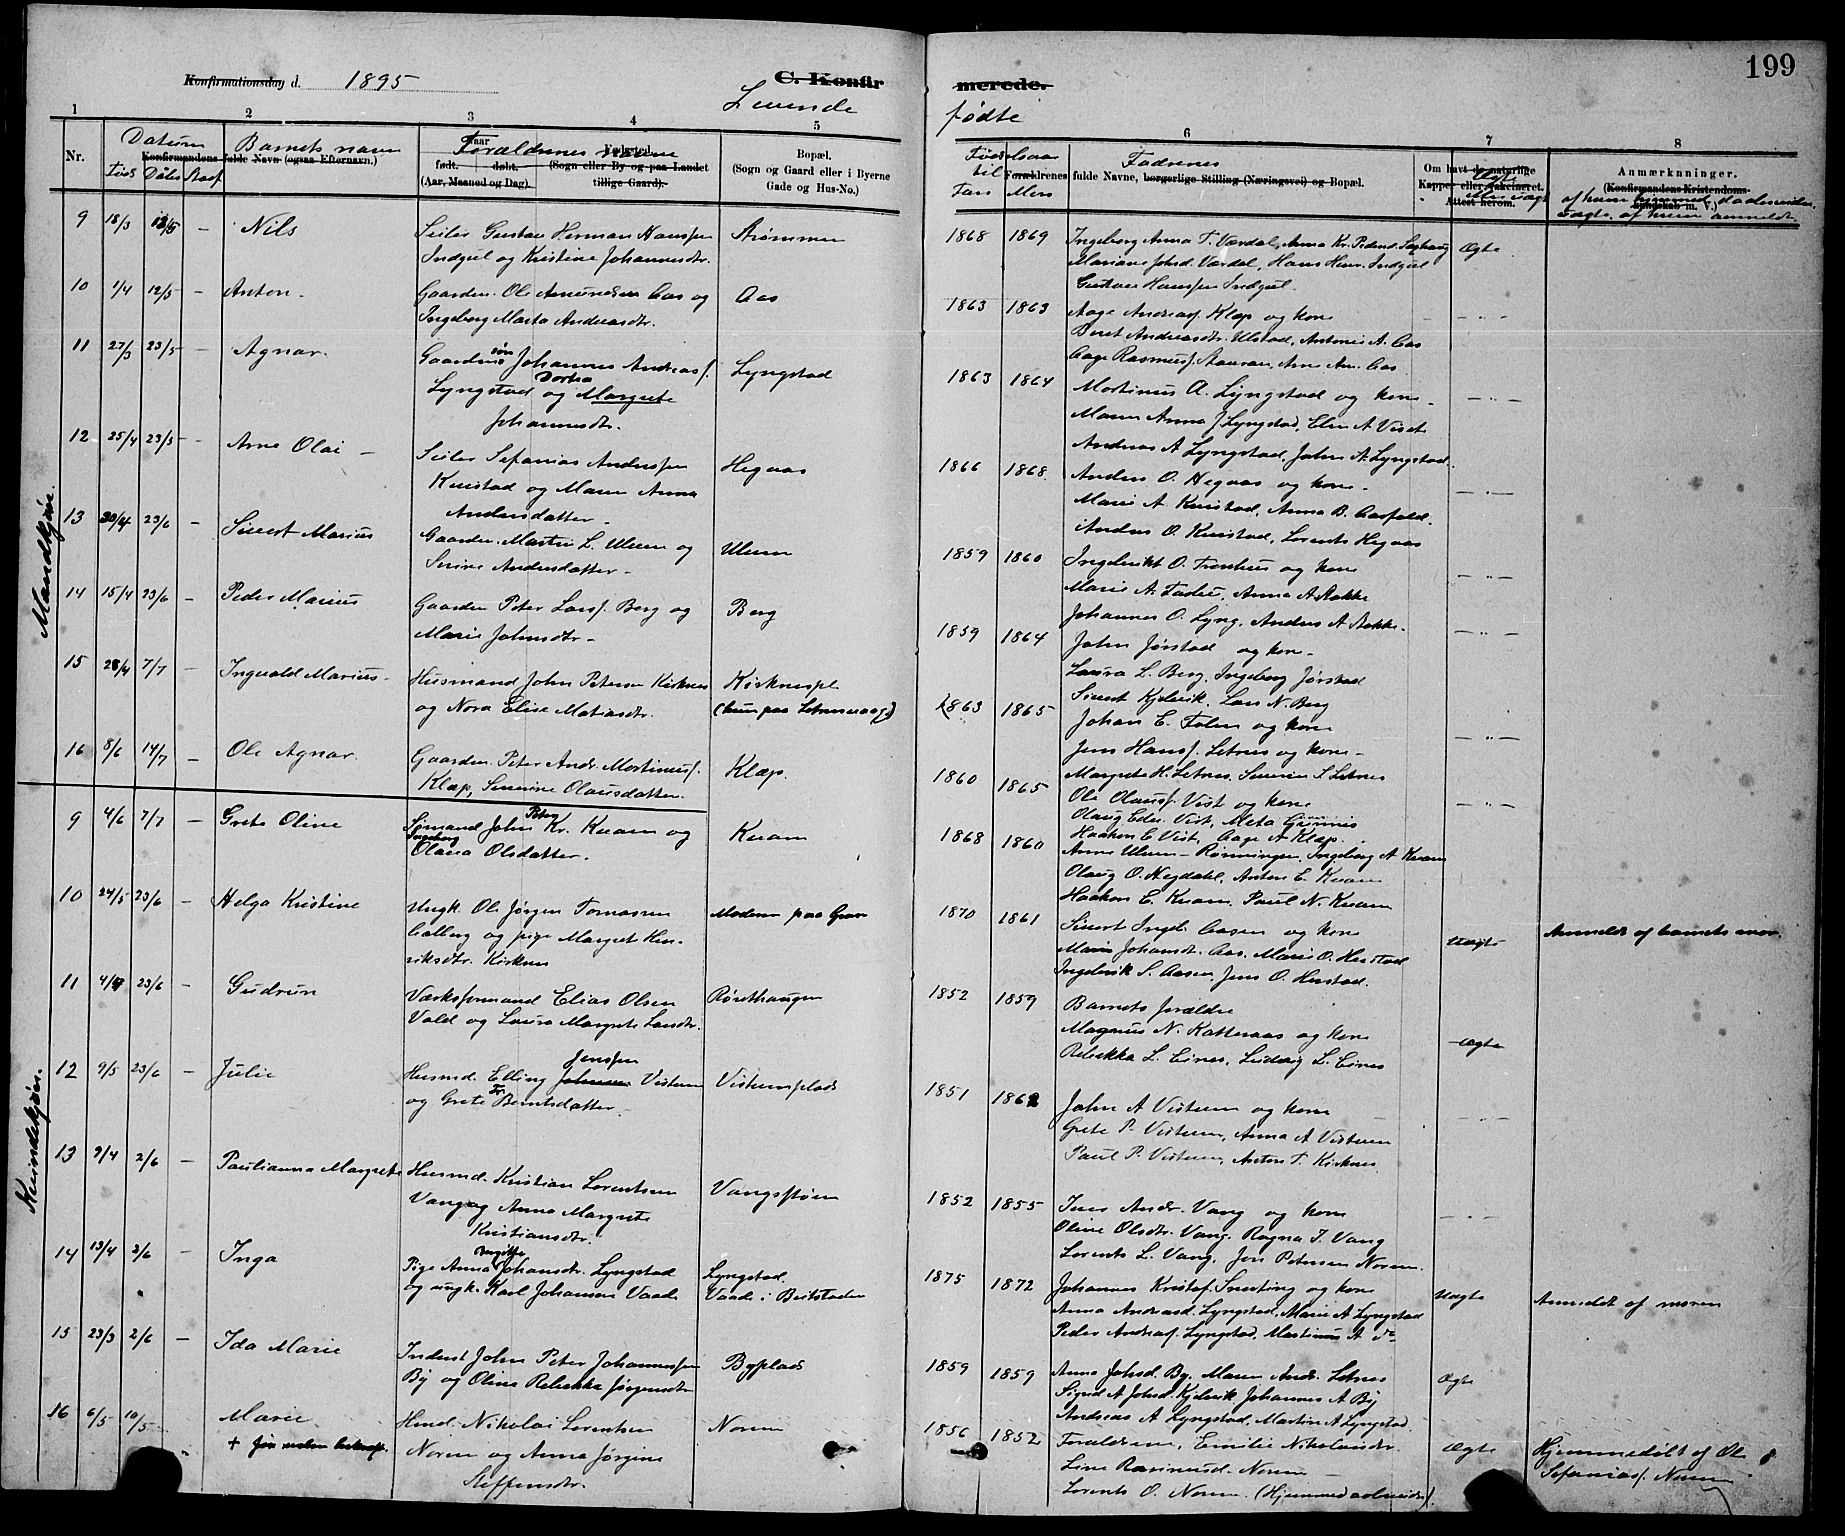 199
Konfirmationsdag d. 1895
C. Konfirmerede.
Levende fødte
1 2 3 4 5 6 7 8
Nr.
Datum
Født Døbt
Barnets navn
Konfirmandens fulde Navn (ogsaa Efternavn.)
Forældrenes navne
Aar
født. døbt.
(Aar, Maaned og Dag).
Fødested.
(Sogn eller By og paa Landet
tillige Gaard).
Bopæl.
(Sogn og Gaard eller i Byerne
Gade og Hus-No.)
Fødselsaar
til
Fars Mors
Fadrenes
Forældrenes fulde Navne, borgerlige Stilling (Næringsvei) og Bopæl.
Om havt de naturlige
Kopper eller vakcineret.
Attest herom.
Anmærkninger.
(Konfirmandens Kristendoms-
kundskab m. V.)
Mandkjøn.
9 18/3 12/5 – Nils
Seiler Gustav Herman Hanssen
Indgul og Kristine Johannesdtr.
Strømmen
1868 1869
Ingeborg Anna T. Værdal, Anna Kr. Pedersd.
Mariane Johnsd. Værdal, Hans Henr. Indgul
Gustav Hanssen Indgul.
Ægte
10 1/4 12/5 – Anton.
Gaardm. Ole Amundsen Aas og
Ingeborg Marta Andreasdtr.
Aas
1863 1863
Aage Andreas. Klæp og kone
Beret Andreasdtr. Ulstad, Antonie A. Aas
Aage Rasmus. Stauran, Arne Am. Aas
– " –
11 27/3 23/5 – Agnar.
Gaardm. søn Johannes Andreas.
Lyngstad og Dortea Margrete
Johannesdtr.
Lyngstad
1863 1864
Mortinus A. Lyngstad og kone
Maren Anna J Lyngstad, Elen A Vist
Andreas A Lyngstad, John A Lyngstad.
– " –
12 25/4 23/5 – Arne Olai –
Seiler Sefanias Anderssen
Kvistad og Maren Anna
Andersdatter –
Hegaas
1866 1868.
Anders O. Hegaas og kone –
Marie A Kvistad, Anna B. Aasfald.
Anders O. Kvistad, Lorents Hegaas
– " –
13 30/4 23/6 – Sivert Marius
Gaardm. Martin L. Ulven og
Serine Andersdatter –
Ulven
1859 1860
Ingebrikt O. Tronhus og kone
Marie A. Tadies, Anna A Stokke
Johannes O. Lyng, Anders A Stokke.
– " –
14 15/4 23/6 – Peder Marius
Gaardm Peter Lars. Berg og
Marie Johnsdtr –
Berg
1859 1864
John Jørstad og kone –
Laura L. Berg, Ingeborg Jørstad
Sivert Kjelvik. Lars N. Berg
– " –
15 28/4 7/7 – Ingvald Marius –
Husmand John Petersen Kirknes
og Nora Elise Matiasdtr.
Kirknespl
1863 1865
Johan E. Folin og kone
Jens Hans. Letnes og kone –
Margrete H. Letnes, Severin S Letnes
– " –
16 8/6 14/7 – Ole Agnar.
Gaardm. Peter Andr. Mortinus.
Klæp, Severine Olausdatter.
Klæp.
1860 1865
Ole Olaus. Vist og kone
Olaug Eder. Vist, Meta Grønnes
Haakon E Vist, Aage A Klæp.
– " –
Kvindekjøn.
9 4/6 7/7 – Grete Oline
Sømand John Peter Kr. Kvam og
Ingeborg Olava Olsdatter.
Kvam
1868 1860
Anne Ulven – Rønningen, Ingeborg A Kvam
Olaug O. Hegdahl, Anton E. Kvam
Haakon E. Kvam, Paul N. Kvam
10 24/5 23/6 – Helga Kristine
Ungk. Ole Jørgen Tomassen
Aalberg og pige Margrete Hen-
riksdtr. Kirknes
Moderen paa Gran
1870 1861
Sivert Ingebr. Aasen og kone
Marie Johansdtr. Aas. Marie O. Hustad
Ingebrik S. Aasen, Jens O. Hustad.
Uægte
Anmeldt af barnets mor.
11 4/4 23/6 – Gudrun
Værksformand Elias Olsen
Vold og Laura Margrete Larsdtr.
Røisethaugen
1852 1859
Barnets forældre
Magnus N. Katteraas og kone
Rebekka L. Eines, Ludvig L. Eines
Ægte
12 9/5 23/6 – Julie
Husmd. Elling Jenssen Vistven
og Grete Fr. Berntsdatter
Vistvenplads
1851 1862
John A Vistven og kone –
Grete P. Vistven, Anna A Vistven
Paul P. Vistven, Anton T. Kirknes
– " –
13 9/4 2/6 – Paulianna Margrete
Husmd. Kristian Lorentsen
Vang og Anna Margrete
Kristiansdtr.
1852 1855
Iver Andr. Vang og kone
Oline Olsdtr. Vang. Ragna I. Vang
Lorents L. Vang, Jon Petersen Norem.
– " –
14 13/4 2/6 – Inga
Pige Anna Bergitte Johansdtr. Lyngstad
og ungk. Karl Johansen Vaade
Lyngstad.
Vaade i Beitstaden
1875 1872
Johannes Kristof. Snerting og kone
Anna Andreasd. Lyngstad, Marie A Lyngstad
Peder Andreas. Lyngstad, Martinus A do
Uægte
Anmeldt af moren
15 23/3 2/6 – Ida Marie
Inderst John Peter Johannessen
By og Oline Rebekka Jørgensdtr
Byplads
1859 1859
Anna Johnsd. By. Maren Andr. Letnes
Sigrid A Johnsd. Kjelvik Johannes A By
Andreas A Lyngstad, Martin A Lyngstad.
Ægte
16 6/5 10/5 – Marie
Husmd. Nikolai Lorentsen
Norem og Anna Jørgine
Steffensdtr.
Norem
1856 1852
Forældrene, Emilie Nikolaisdtr.
Line Rasmusd. Norem –
Lorents O. Norem.
Ægte
Hjemmedøbt af Ole
Sefanias. Norem